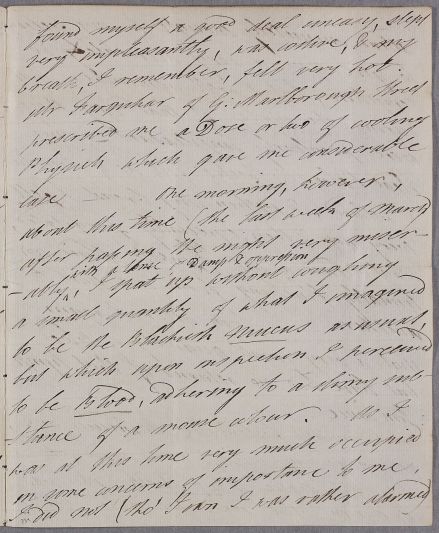 found myself a good deal uneasy, slept
very unpleasantly, was costive, & my
breath, I remember, felt very hot.
Mr Farquhar of G. Marlborough Street
prescribed me a Dose or two of cooling
Physick which gave me considerable
ease — One morning, however,
about this time (the last week of March)
after passing the night very miser-
-ably, with a tense & Damp Perspiration
I spat up without coughing
a small quantity of what I imagined
to be the Blackish Mucus as usual,
but which upon inspection I perceived
to be Blood, adhering to a slimy sub-
-stance of a mouse colour. As I
was at this time very much occupied
in some concerns of importance to me,
I did not (tho' I own I was rather alarmed)